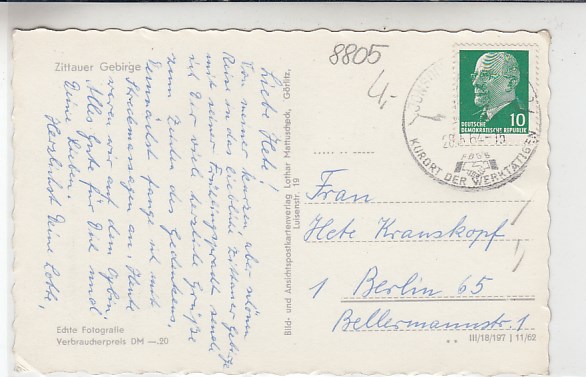 Zittauer Gebirge
8805
4,-
Liebe Hete!
Von meiner kurzen, aber schönen
Reise in das liebliche Zittauer Gebirge
mit seiner Frühlingspracht sende
ich Dir viel herzliche Grüße
zum Zeichen des Gedenkens,
Demnächst fange ich mit
an, Heute
waren wir auf dem Oybin,
Alles Gute für Dich und
Deine Lieben.
Herzlichst Deine Lotte,
Echte Fotografie
Verbraucherpreis DM —.20
Bild- und Ansichtspostkartenverlag Lothar Mattuscheck, Görlitz,
Luisenstr. 19
10
DEUTSCHE
DEMOKRATISCHE REPUBLIK
FDGB
KURORT DER WERKTÄTIGEN
Frau
Hete Kranskopf
1 Berlin 65
Bellermannstr. 1
III/18/197 | 11/62